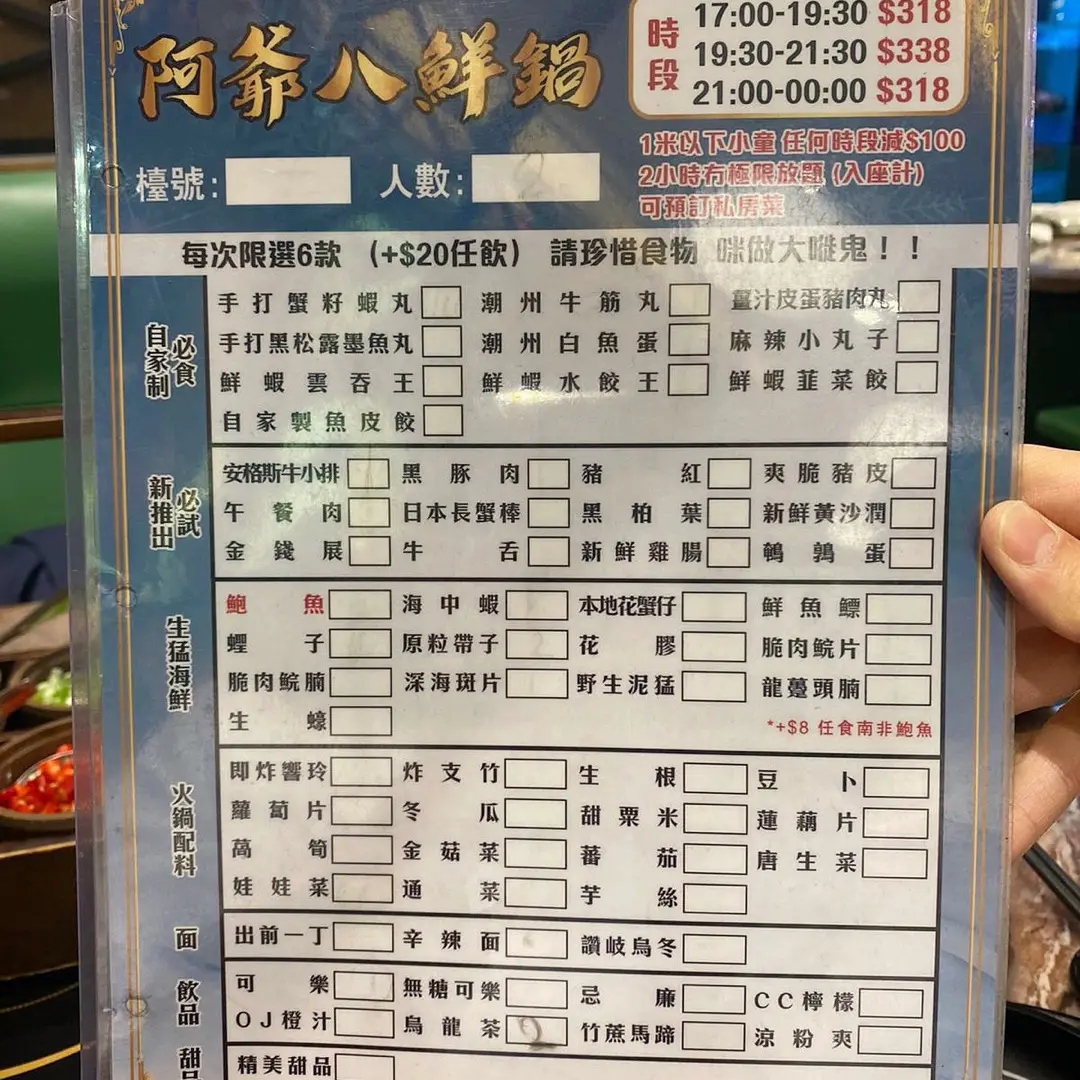 阿爺八鮮鍋
時段
17:00-19:30 $318
19:30-21:30 $338
21:00-00:00 $318
檯號: 人數:
1米以下小童 任何時段減$100
2小時冇極限放題 (入座計)
可預訂私房菜
每次限選6款 (+$20任飲) 請珍惜食物 咪做大嘥鬼！！
自家制 必食
手打蟹籽蝦丸 潮州牛筋丸 薑汁皮蛋豬肉丸
手打黑松露墨魚丸 潮州白魚蛋 麻辣小丸子
鮮蝦雲吞王 鮮蝦水餃王 鮮蝦韮菜餃
自家製魚皮餃
新推出 必試
安格斯牛小排 黑豚肉 豬紅 爽脆豬皮
午餐肉 日本長蟹棒 黑柏葉 新鮮黃沙潤
金錢展 牛舌 新鮮雞腸 鵪鶉蛋
生猛海鮮
鮑魚 海中蝦 本地花蟹仔 鮮魚鰾
蟶子 原粒帶子 花膠 脆肉鯇片
脆肉鯇腩 深海斑片 野生泥猛 龍躉頭腩
生蠔
*+$8 任食南非鮑魚
火鍋配料
即炸響玲 炸支竹 生根 豆卜
蘿蔔片 冬瓜 甜粟米 蓮藕片
萵筍 金菇菜 蕃茄 唐生菜
娃娃菜 通菜 芋絲
面
出前一丁 辛辣面 讚岐烏冬
飲品
可樂 無糖可樂 忌廉 CC檸檬
OJ橙汁 烏龍茶 竹蔗馬蹄 涼粉爽
甜品
精美甜品